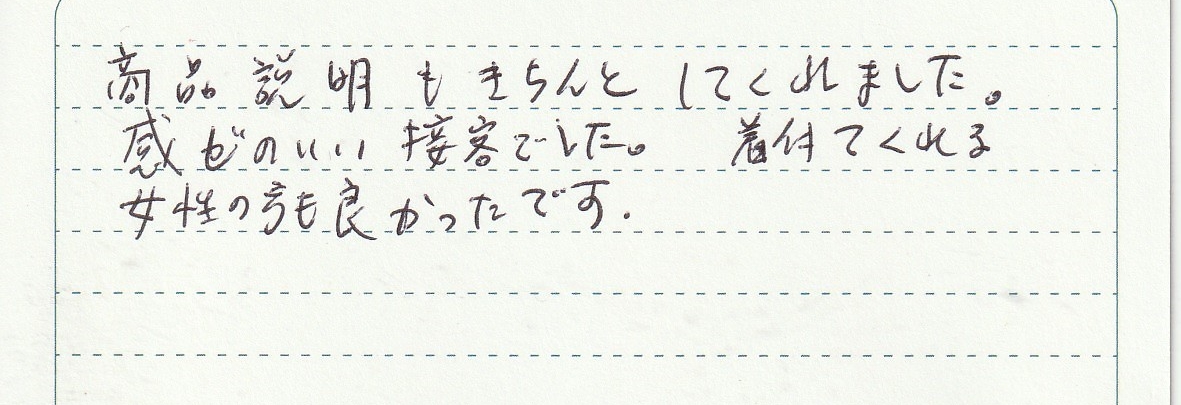 商品説明もきちんとしてくれました。
感じのいい接客でした。 着付てくれる
女性の方も良かったです.